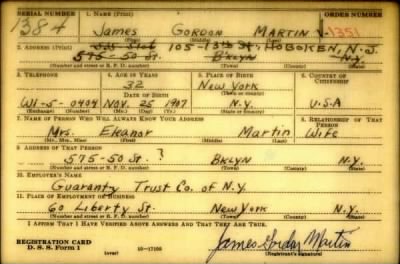 SERIAL NUMBER 1. NAME (Print) ORDER NUMBER
1384 JAMES GORDON MARTIN V-1351
(First) (Middle) (Last)
2. ADDRESS (Print) 105-13th St., HOBOKEN, N.J.
575-50 St. BKLYN N.Y.
(Number and street or R. F. D. number) (Town) (County) (State)
3. TELEPHONE 4. AGE IN YEARS 5. PLACE OF BIRTH 6. COUNTRY OF CITIZENSHIP
32 New York
DATE OF BIRTH (Town or county)
WI-5-0404 Nov. 25 1907 N.Y. U.S.A
(Exchange) (No.) (Mo.) (Day) (Yr.) (State or country)
7. NAME OF PERSON WHO WILL ALWAYS KNOW YOUR ADDRESS 8. RELATIONSHIP OF THAT PERSON
Mrs. Eleanor Martin Wife
(Mr., Mrs., Miss) (First) (Middle) (Last)
9. ADDRESS OF THAT PERSON
575-50 St. ? BKLYN N.Y.
(Number and street or R. F. D. number) (Town) (County) (State)
10. EMPLOYER'S NAME
Guaranty Trust Co. of N.Y.
11. PLACE OF EMPLOYMENT OR BUSINESS
60 Liberty St. New York N.Y.
(Number and street or R. F. D. number) (Town) (County) (State)
I AFFIRM THAT I HAVE VERIFIED ABOVE ANSWERS AND THAT THEY ARE TRUE.
REGISTRATION CARD James Gordon Martin
D. S. S. Form 1 (over) 16-17105 (Registrant's signature)